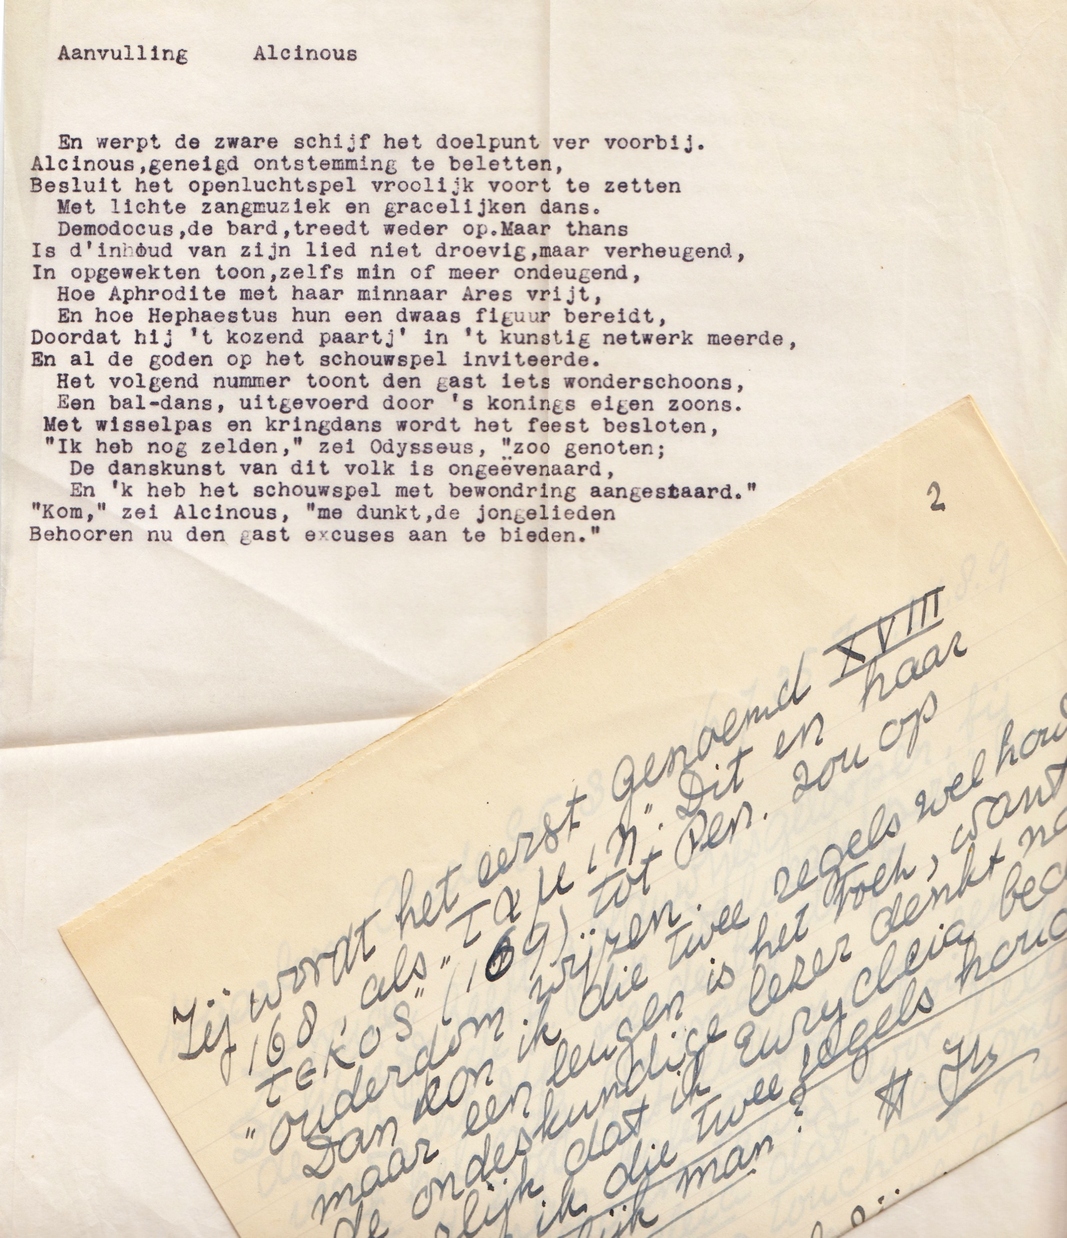 Aanvulling Alcinous
En werpt de zware schijf het doelpunt ver voorbij.
Alcinous,geneigd ontstemming te beletten,
Besluit het openluchtspel vroolijk voort te zetten
Met lichte zangmuziek en gracelijken dans.
Demodocus,de bard,treedt weder op.Maar thans
Is d'inhoud van zijn lied niet droevig,maar verheugend,
In opgewekten toon,zelfs min of meer ondeugend,
Hoe Aphrodite met haar minnaar Ares vrijt,
En hoe Hephaestus hun een dwaas figuur bereidt,
Doordat hij 't kozend paartj' in 't kunstig netwerk meerde,
En al de goden op het schouwspel inviteerde.
Het volgend nummer toont den gast iets wonderschoons,
Een bal-dans, uitgevoerd door 's konings eigen zoons.
Met wisselpas en kringdans wordt het feest besloten,
"Ik heb nog zelden," zei Odysseus, "zoo genoten;
De danskunst van dit volk is ongeëvenaard,
En 'k heb het schouwspel met bewondring aangestaard."
"Kom," zei Alcinous, "me dunkt,de jongelieden
Behooren nu den gast excuses aan te bieden."
2
Zij wordt het eerst genoemd XVIII
168, als "ταμίη". Dit en haar
τεκος" (169) tot Pen. zou op
"ouderdom wijzen.
Dan kon ik die twee regels wel houd
maar een leugen is het toch, want
de ondeskundige lezer denkt na
lijk dat ik Eurycleia bed
ik die twee regels houd
lijk man?